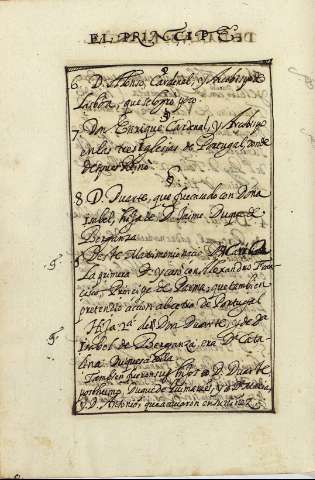 EL PRINCIPE
6 D. Alonso Cardenal, y Arzobispo de
Lisboa, que
7 Don Enrique Cardenal, y Arzobispo
en las tres Iglesias de Portugal, donde
despues Reynó
8 D. Duarte, que fue casado con Doña
Isabel, hija de D. Jaime Duque de
Berganza
De este Matrimonio nacio D. Maria
La primera q caso con Alexandro Farn
cisio, Principe de Parma, que tambien
pretendio accion al cetro de Portugal
Hija 2a del Don Duarte, y de Da
Isabel de Berganza era Da Cata
lina Duquesa
Tambien fueron sus hijos D. Duarte
Duque de Guimaraes, y
y D. Antonio, que murieron en su niñez